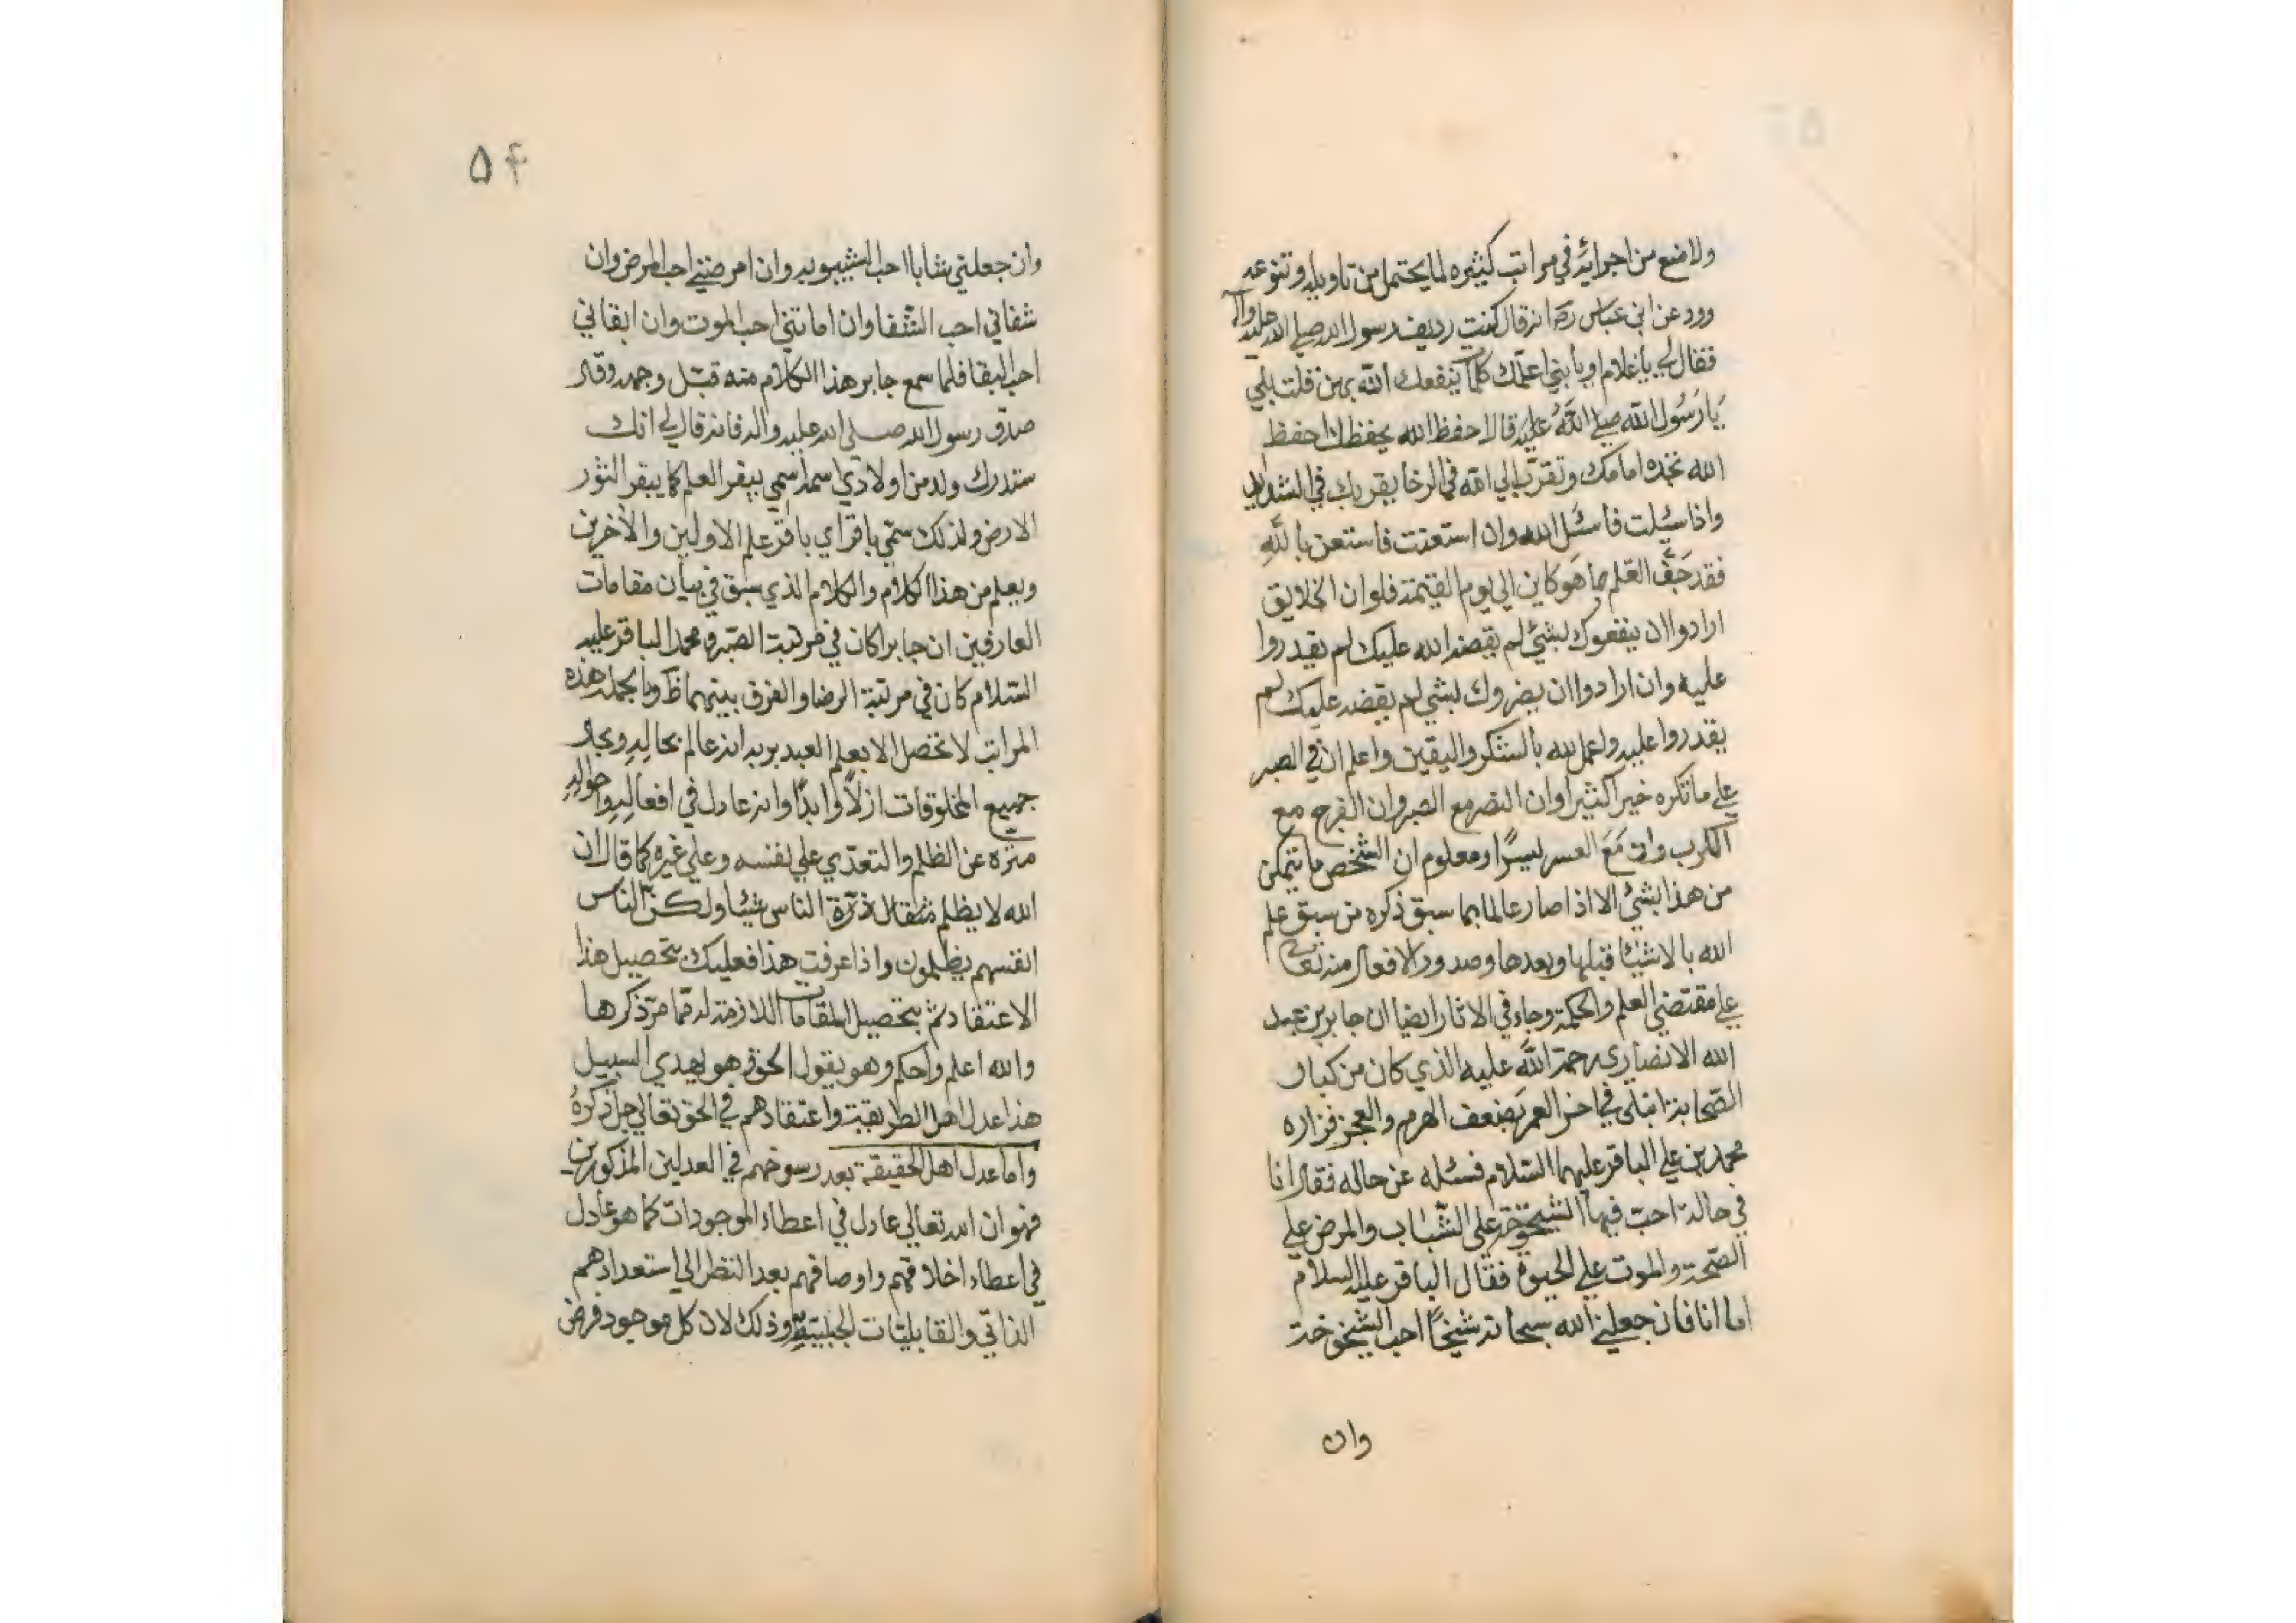 ولا منع من اجرائه في مراتب كثيره لما يحتمل من تاويله وتنوعه
ورد عن ابن عباس رض انه قال كنت رديف رسول الله صلي الله عليه وآله
فقال لي يا غلام او يا بني اعلمك كلمات ينفعك الله بهن فقلت بلي
يا رسول الله صلي الله عليه قال احفظ الله يحفظك احفظ
الله تجده امامك وتقرب الي الله في الرخا يقربك في الشدايد
واذا سئلت فاسئل الله وان استعنت فاستعن بالله
فقد جف القلم بما هو كاين الي يوم القيمة فلو ان الخلايق
ارادوا ان ينفعوك بشئ لم يقضه الله عليك لم يقدروا
عليه وان ارادوا ان يضروك بشي لم يقضه عليك لم
يقدروا عليه واعمل لله بالشكر واليقين واعلم ان في الصبر
علي ما تكره خيرا كثيرا وان النصر مع الصبر وان الفرج مع
الكرب وان مع العسر يسرًا ومعلوم ان الشخص ما يتمكن
من هذا بشئ الا اذا صار عالما بما سبق ذكره من سبق علم
الله بالاشيا قبلها وبعدها وصدور الافعال منه تعالى
علي مقتضي العلم والحكمة وجاء في الاثار ايضا ان جابر بن عبد
الله الانصاري رحمة الله عليه الذي كان من كبار
الصحابة ابتلى في اخر العمر بضعف الهرم والعجز فزاره
محمد بن علي الباقر عليهما السلام فسئله عن حاله فقال انا
في حالة احب فيها الشيخوخة على الشباب والمرض علي
الصحة والموت علي الحيوة فقال الباقر عليه السلام
اما انا فان جعلني الله سبحانه شيخًا احب الشيخوخة
وان
۵۴
وان جعلني شابا احب الشيبوبه وان امرضني احب المرض وان
شفاني احب الشفا وان اماتني احب الموت وان ابقاني
احب البقا فلما سمع جابر هذا الكلام منه قبل وجهه وقال
صدق رسول الله صلى الله عليه واله فانه قال لي انك
ستدرك ولد من اولادي اسمه اسمي يبقر العلم كما يبقر الثور
الارض ولذلك سمي باقر اي باقر علم الاولين والآخرين
ويعلم من هذا الكلام والكلام الذي سبق في بيان مقامات
العارفين ان جابرا كان في مرتبة الصبر ومحمد الباقر عليه
السلام كان في مرتبة الرضا والفرق بينهما ظ وبالجملة هذه
المراتب لا تحصل الا بعلم العبد بربه انه عالم بحاله وبحال
جميع المخلوقات ازلاً وابدًا وانه عادل في افعاله واحواله
منزه عن الظلم والتعدي علي نفسه وعلي غيره كما قال ان
الله لا يظلم مثقال ذرة الناس شيئا ولكن الناس
انفسهم يظلمون واذا عرفت هذا فعليك بتحصيل هذا
الاعتقاد ثم بتحصيل المقامات اللازمة له مما مر ذكرها
والله اعلم واحكم وهو يقول الحق وهو يهدي السبيل
هذا عدل اهل الطريقة واعتقادهم في الحق تعالي جل ذكره
واما عدل اهل الحقيقة بعد رسوخهم في العدلين المذكورين
فهو ان الله تعالي عادل في اعطاء الموجودات كما هو عادل
في اعطاء اخلاقهم واوصافهم بعد النظر الي استعدادهم
الذاتي والقابليات الجبلية وذلك لان كل موجود فرض